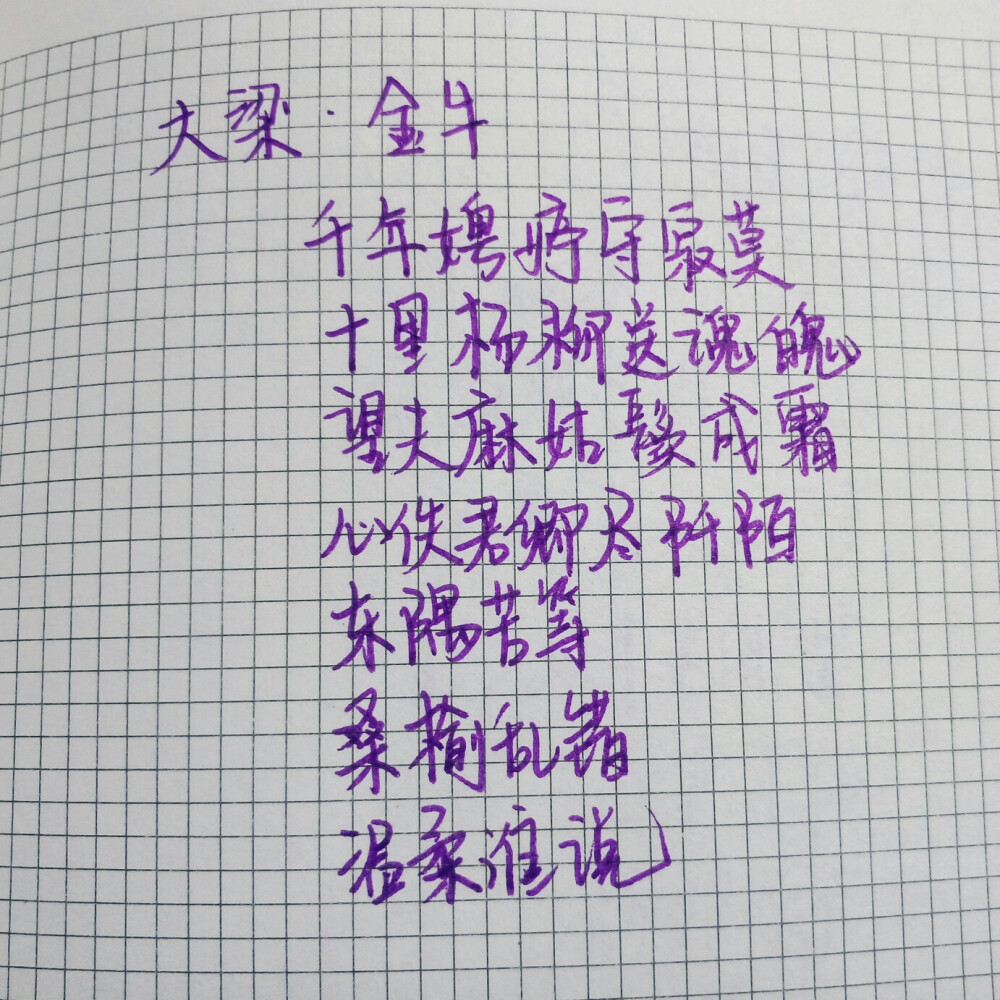 大梁·金牛
千年娉婷守寂莫
十里杨柳送魂魄
望夫麻姑鬓成霜
心佚君卿尽阡陌
东隅苦等
桑榆乱错
温柔谁说